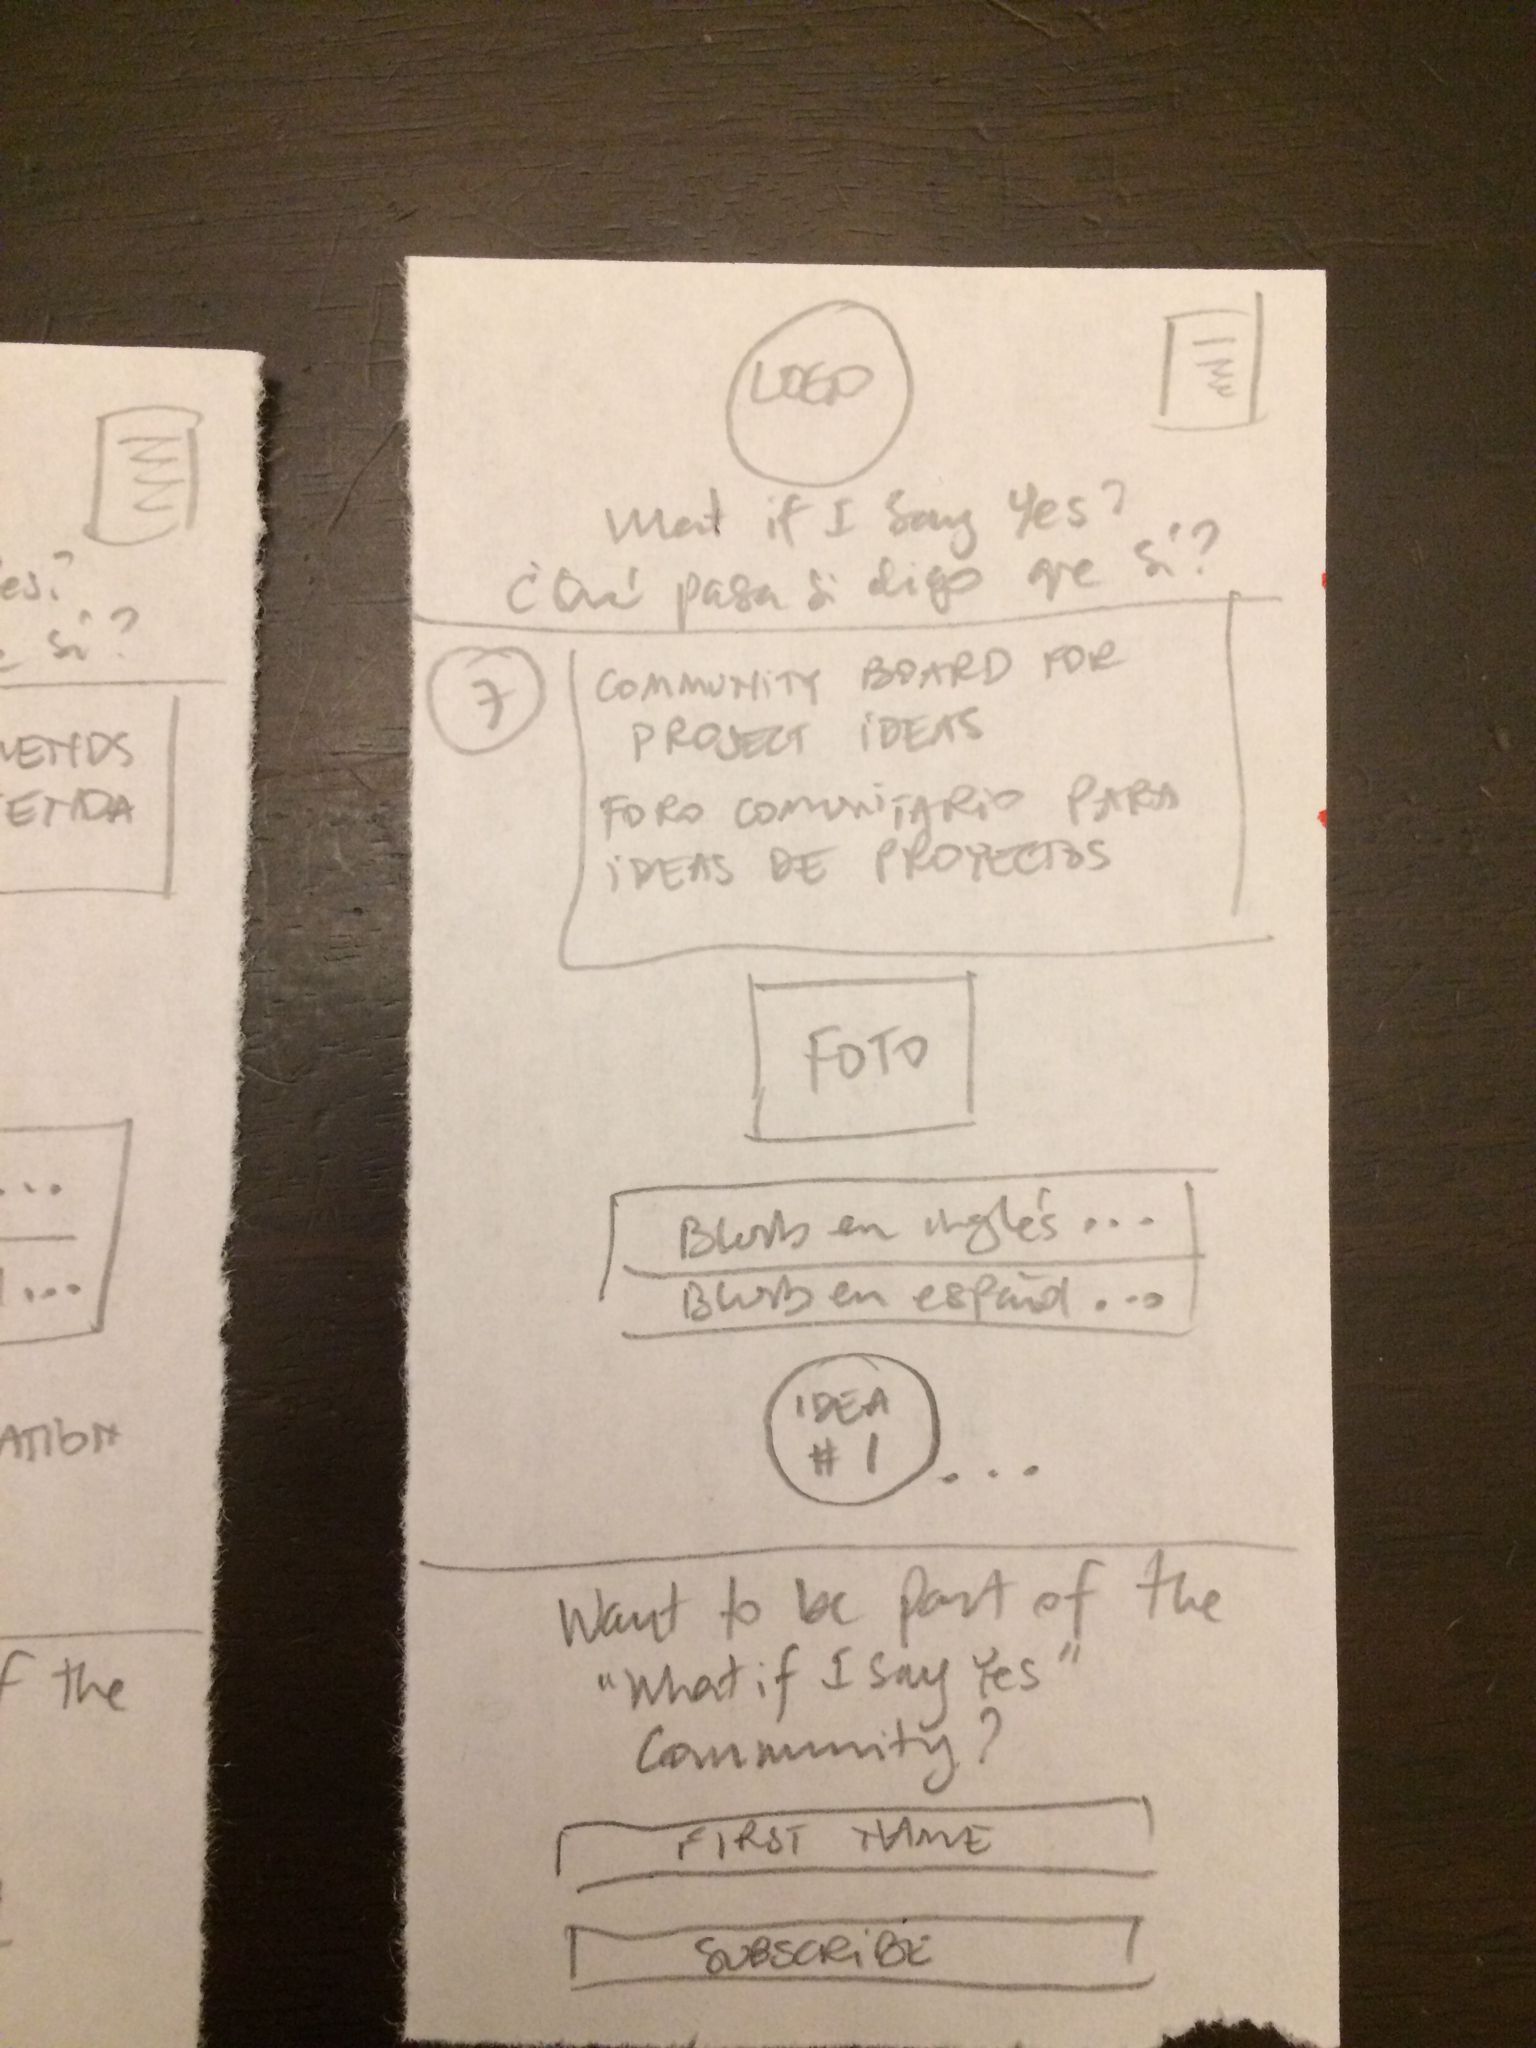 LOGO
What if I Say Yes?
¿Qué pasa si digo que sí?
7
COMMUNITY BOARD FOR
PROJECT IDEAS
FORO COMUNITARIO PARA
IDEAS DE PROYECTOS
FOTO
Blurb en inglés ...
Blurb en español ...
IDEA
# 1 ...
Want to be part of the
"What if I say Yes"
Community?
FIRST NAME
SUBSCRIBE
es?
sí?
...
...
ATION
f the